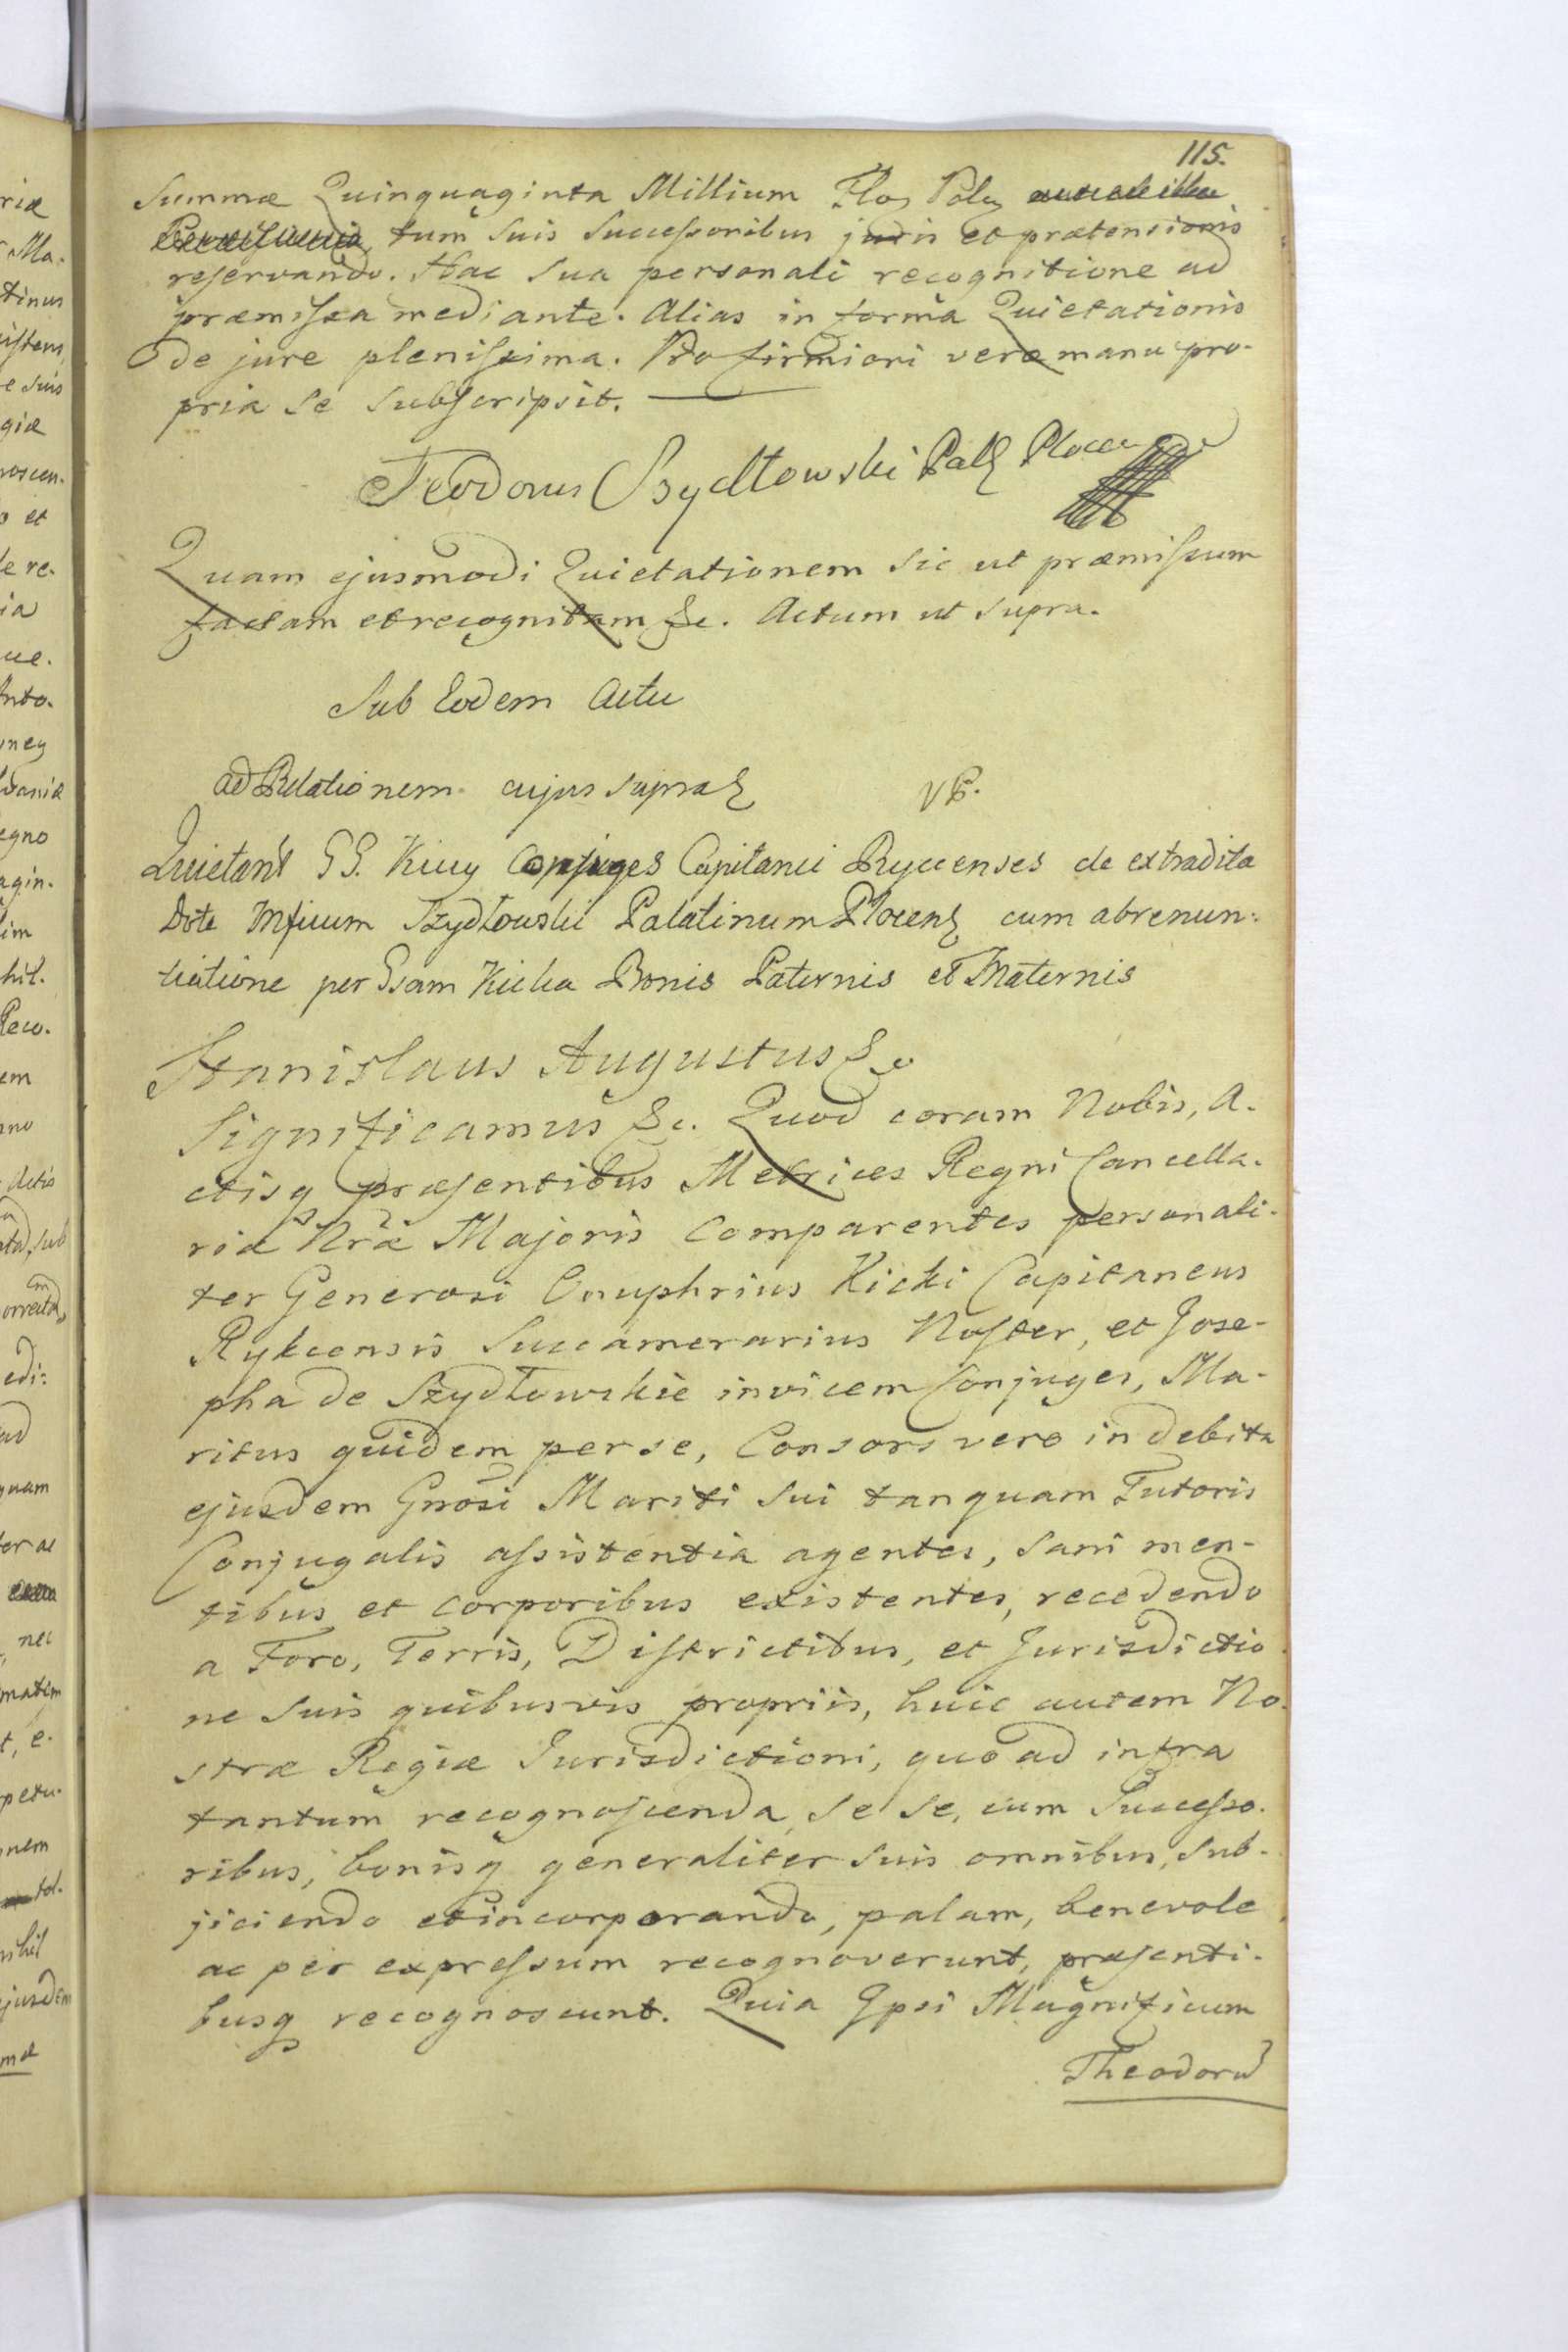 115.
Summæ Quinquaginta Millium Flor Poly
tum suis Successoribus juris et prætensionis
reservando. Hac sua personali recognitione ad
præmissa mediante. Alias in forma Quietationis
de jure plenissima. Pro firmiori vero manu pro-
pria se subscripsit.
Teodorus Szydłowski Palz Plocen
Quam ejusmodi Quietationem sic ut præmissum
factam et recognitam &c. Actum ut supra.
Sub Eodem Actu
ad Relationem cujus supra VP.
Quietant GG. Kiccy Conjuges Capitanei Rycenses de extradita
Dote Mficum Szydłowski Palatinum Plocenz cum abrenun:
tiatione per Gsam Kicka Bonis Paternis et Maternis
Stanislaus Augustus &c
Significamus &c. Quod coram Nobis, A-
ctisq præsentibus Metrices Regni Cancella-
riæ Nræ Majoris Comparentes personali-
ter Generosi Onuphrius Kicki Capitaneus
Rykcensis Succamerarius Noster, et Jose-
pha de Szydłowskie invicem Conjuges, Ma-
ritus quidem per se, Consors vero in debita
ejusdem Gnosi Mariti sui tanquam Tutoris
Conjugalis assistentia agentes, sani men-
tibus et corporibus existentes, recedendo
a Foro, Terris, Districtibus, et Jurisdictio
ne suis quibusvis propriis, huic autem No-
stræ Regiæ Jurisdictioni, quo ad infra
tantum recognoscenda, se se, cum Successo-
ribus, bonisq generaliter suis omnibus, sub-
jiciendo et incorporando, palam, benevole
ac per expressum recognoverunt, præsenti-
busq recognoscunt. Quia Ipsi Magnificum
Theodorum